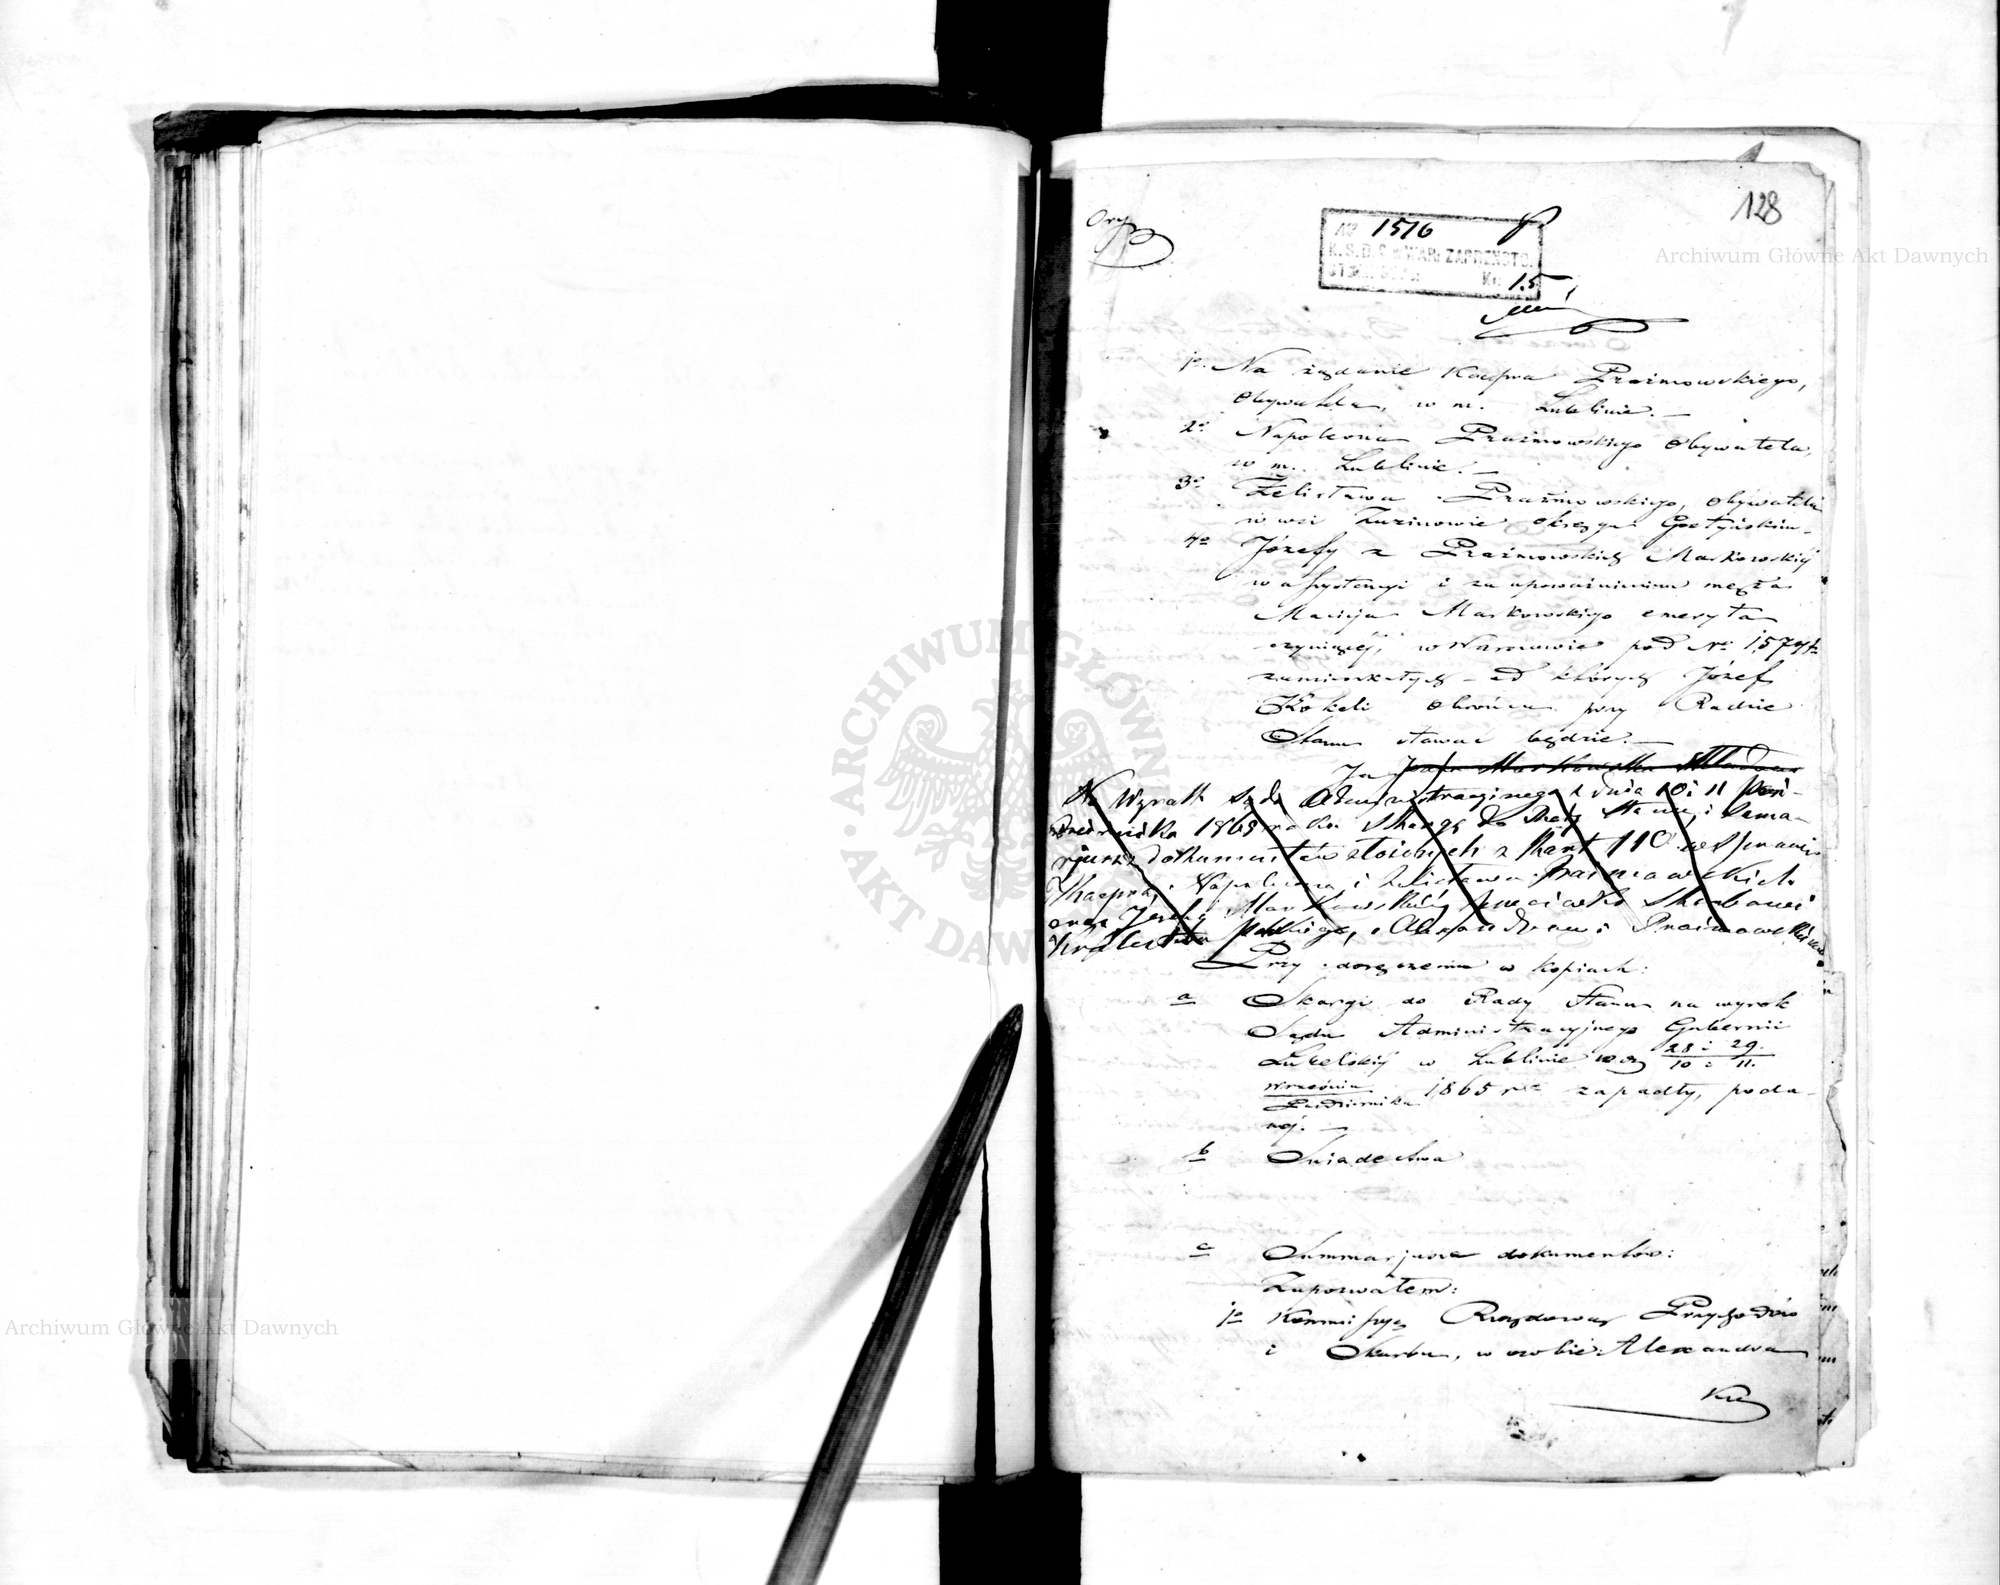 128
Oryg
No 1516
K. S. D. G. WAR. ZAPREZSTO.
Kr. 15
Archiwum Główne Akt Dawnych
1o. Na żądanie Kacpra Prażmowskiego,
Obywatela, w m. Lublinie. —
2o Napoleona Prażmowskiego Obywatela,
w m. Lublinie. —
3o Żelisława Prażmowskiego, Obywatela
w wsi Okręgu Gostyńskim.
4o Józefy z Prażmowskich Markowskiéj
w assystencyi i za upoważnieniem męża
Macieja Markowskiego emeryta
czyniącéj, w Warszawie pod No 1574
zamieszkałych – od których Józef
Kokeli obrońca przy Radzie
Stanu stawać będzie. —
Ja Markowska
Wyrok Sądu Administracyjnego z dnia 10 i 11 Paź-
dziernika 1865 roku Skargę do Rady Stanu, i Summa-
rjusz dokumentów złożonych z kart 110 w sprawie
Kacpra, Napoleona i Żelisława Prażmowskich
oraz Józefy Markowskiéj przeciwko Skarbowi
Królestwa Polskiego, i Prażmowskim
Przy doręczeniu w kopiach:
a Skargi do Rady Stanu na wyrok
Sądu Administracyjnego Gubernii
Lubelskiéj w Lublinie 28 i 29.
10 i 11.
Września
Października 1865 r. zapadły, poda-
néj. —
b Świadectwa
c Summarjusza dokumentów:
Zapozwałem:
1o Kommissyą Rządową Przychodów
i Skarbu, w osobie Alexandra
ARCHIWUM GŁÓWNE
AKT DAWNYCH
Archiwum Główne Akt Dawnych